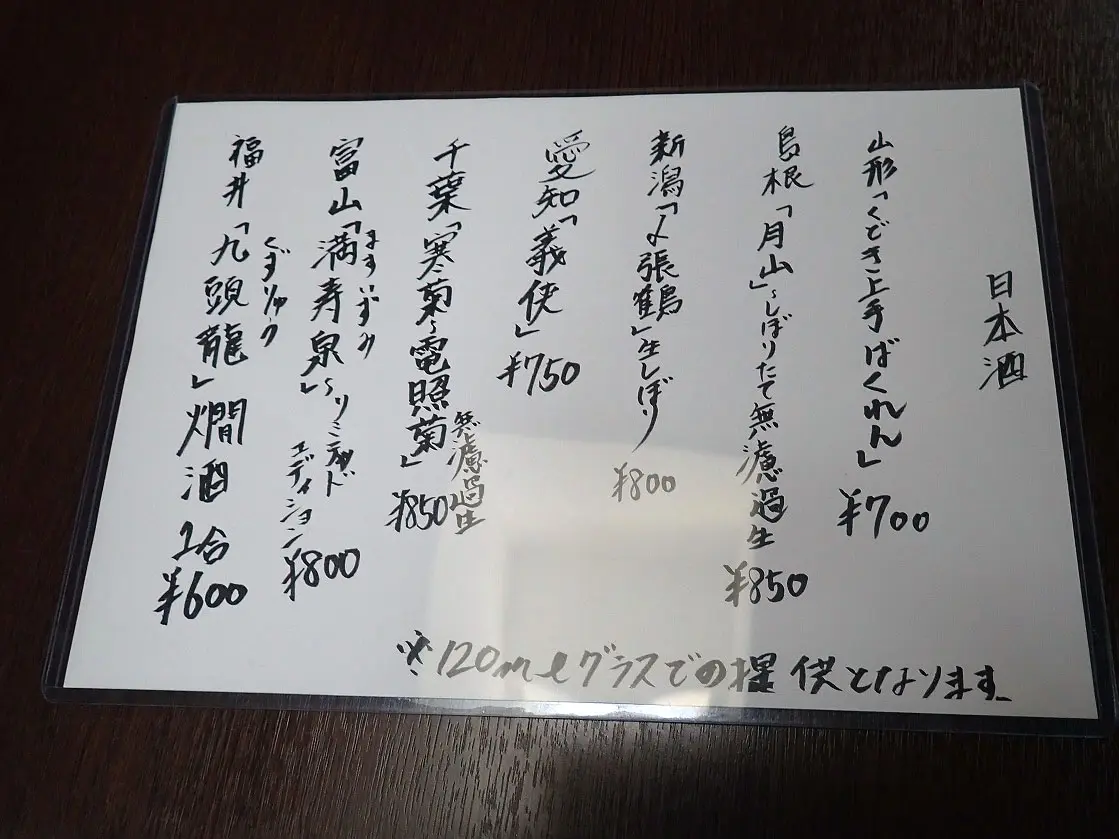 日本酒
山形「くどき上手ばくれん」 ¥700
島根「月山」~しぼりたて無濾過生 ¥850
新潟「〆張鶴」生しぼり ¥800
愛知「義侠」 ¥750
千葉「寒菊~電照菊」無濾過生 ¥850
富山「満寿泉」~リミテッドエディション ¥800
ますいずみ
福井「九頭龍」燗酒 1合 ¥600
くずりゅう
※120mlグラスでの提供となります